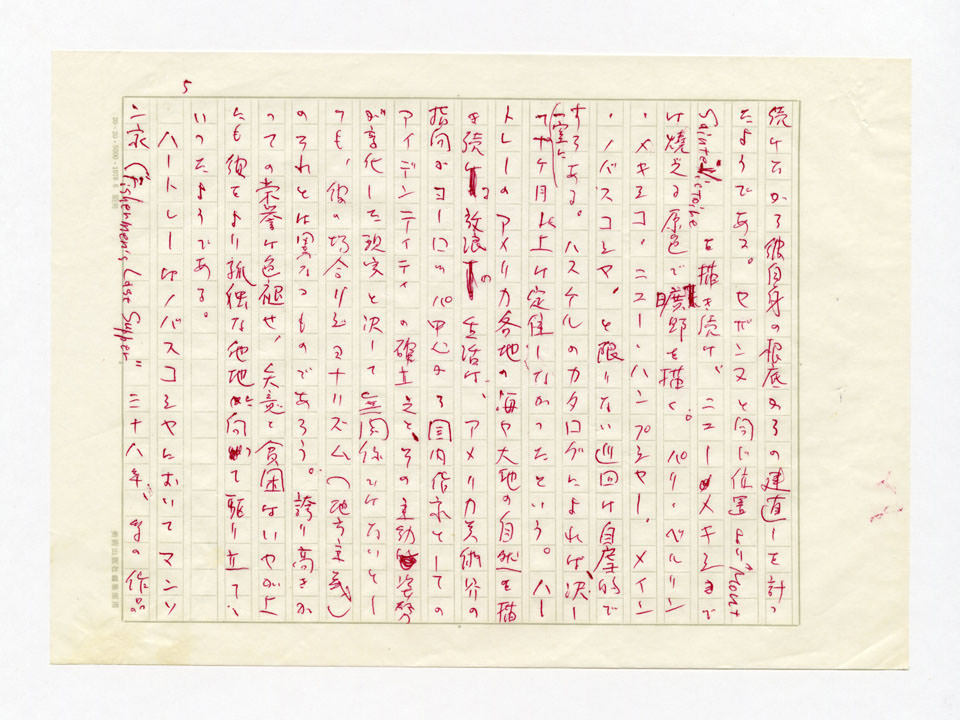 続けながら彼自身の根底からの建直しを計っ
たようである。セザンヌと同じ位置より"Mount
Sainte Victoire"を描き続け、ニューメキシコで
は燃える原色で曠野を描く。パリ・ベルリン
・メキシコ・ニューハンプシャー・メイン
・ノバスコシヤ、と限りない巡回は自虐的で
すらある。ハスケルのカタログによれば、決し
て十ヶ月以上は一定に定住しなかったという。ハー
トレーのアメリカ各地の海や大地の自然を描
き続ける放浪の生活は、アメリカ美術界の
指向がヨーロッパ中心から国内作家としての
アイデンティティの確立えと、その主動姿勢
が変化した現実と決して無関係ではないとし
ても、彼の場合リジョナリズム(地方主義)
のそれとは異なるものであろう。誇り高きか
つての栄誉は色褪せ、失意と貧困はいやが上
にも彼をより孤独な他地に向って駆り立てて
いったようである。
ハートレーはノバスコシヤにおいてマンソ
ン家("Fishermen's Last Supper" 三十八年、の作品
5
20×20